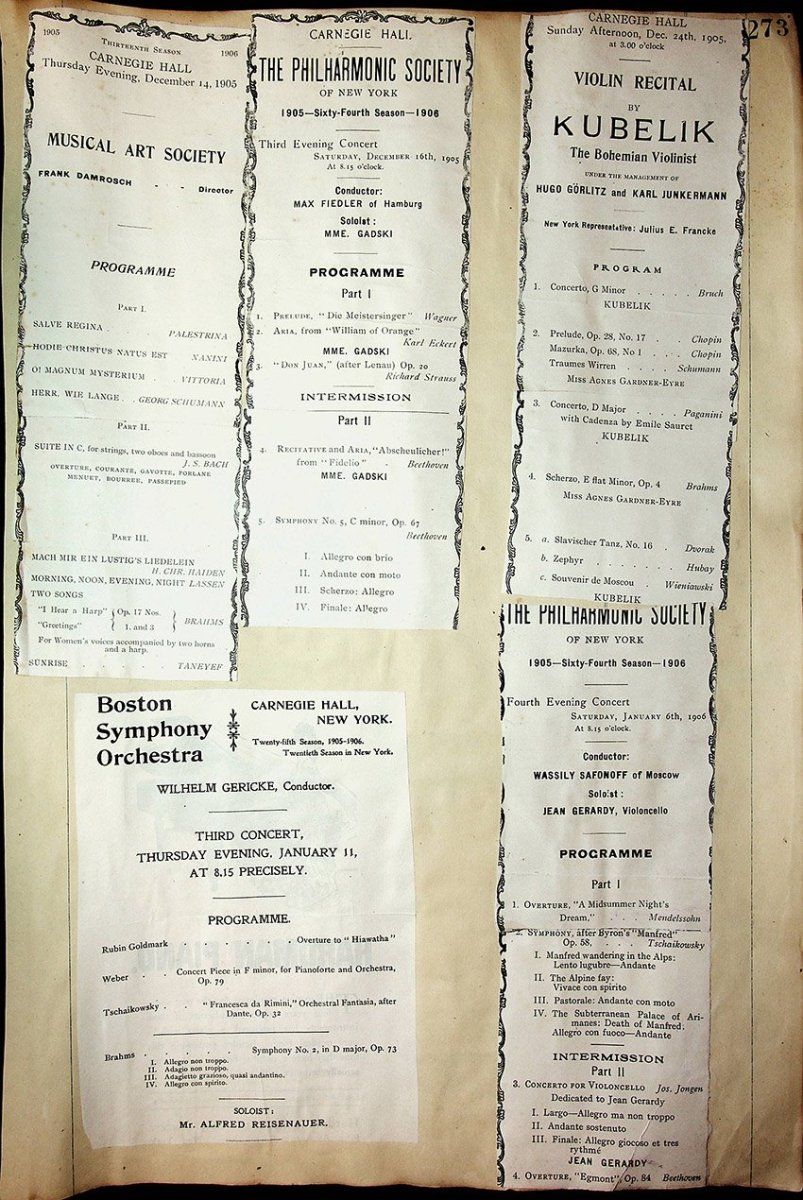 273
1905 Thirteenth Season 1906
CARNEGIE HALL
Thursday Evening, December 14, 1905
MUSICAL ART SOCIETY
FRANK DAMROSCH - - Director
PROGRAMME
Part I.
SALVE REGINA . . PALESTRINA
HODIE CHRISTUS NATUS EST NANINI
O! MAGNUM MYSTERIUM . . VITTORIA
HERR, WIE LANGE . . GEORG SCHUMANN
Part II.
SUITE IN C, for strings, two oboes and bassoon
J. S. BACH
OVERTURE, COURANTE, GAVOTTE, FORLANE
MENUET, BOURREE, PASSEPIED
Part III.
MACH MIR EIN LUSTIG'S LIEDELEIN
H. CHR. HAIDEN
MORNING, NOON, EVENING, NIGHT LASSEN
TWO SONGS
"I Hear a Harp" { Op. 17 Nos. }
"Greetings" { 1. and 3 } BRAHMS
For Women's voices accompanied by two horns
and a harp.
SUNRISE . . . . . TANEYEF
CARNEGIE HALL
THE PHILHARMONIC SOCIETY
OF NEW YORK
1905—Sixty-Fourth Season—1906
Third Evening Concert
Saturday, December 16th, 1905
At 8.15 o'clock.
Conductor:
MAX FIEDLER of Hamburg
Soloist:
MME. GADSKI
PROGRAMME
Part I
1. Prelude, "Die Meistersinger" Wagner
2. Aria, from "William of Orange"
Karl Eckert
MME. GADSKI
3. "Don Juan," (after Lenau) Op. 20
Richard Strauss
INTERMISSION
Part II
4. Recitative and Aria, "Abscheulicher!"
from "Fidelio" . Beethoven
MME. GADSKI
5. Symphony No. 5, C minor, Op. 67
Beethoven
I. Allegro con brio
II. Andante con moto
III. Scherzo: Allegro
IV. Finale: Allegro
CARNEGIE HALL
Sunday Afternoon, Dec. 24th, 1905,
at 3.00 o'clock
VIOLIN RECITAL
BY
KUBELIK
The Bohemian Violinist
UNDER THE MANAGEMENT OF
HUGO GÖRLITZ and KARL JUNKERMANN
New York Representative: Julius E. Francke
PROGRAM
1. Concerto, G Minor . . . . . Bruch
KUBELIK
2. Prelude, Op. 28, No. 17 . . Chopin
Mazurka, Op. 68, No 1 . . . Chopin
Traumes Wirren . . . . Schumann
Miss Agnes Gardner-Eyre
3. Concerto, D Major . . . . Paganini
with Cadenza by Emile Sauret
KUBELIK
4. Scherzo, E flat Minor, Op. 4 Brahms
Miss Agnes Gardner-Eyre
5. a. Slavischer Tanz, No. 16 . Dvorak
b. Zephyr . . . . . . . Hubay
c. Souvenir de Moscou . Wieniawski
KUBELIK
THE PHILHARMONIC SOCIETY
OF NEW YORK
1905—Sixty-Fourth Season—1906
Fourth Evening Concert
Saturday, January 6th, 1906
At 8.15 o'clock.
Conductor:
WASSILY SAFONOFF of Moscow
Soloist:
JEAN GERARDY, Violoncello
PROGRAMME
Part I
1. Overture, "A Midsummer Night's
Dream," . . . Mendelssohn
2. Symphony, after Byron's "Manfred"
Op. 58, . . . Tschaikowsky
I. Manfred wandering in the Alps:
Lento lugubre—Andante
II. The Alpine fay:
Vivace con spirito
III. Pastorale: Andante con moto
IV. The Subterranean Palace of Ari-
manes: Death of Manfred:
Allegro con fuoco—Andante
INTERMISSION
Part II
3. Concerto for Violoncello Jos. Jongen
Dedicated to Jean Gerardy
I. Largo—Allegro ma non troppo
II. Andante sostenuto
III. Finale: Allegro giocoso et tres
rythmé
JEAN GERARDY
4. Overture, "Egmont", Op. 84 Beethoven
Boston
Symphony
Orchestra
CARNEGIE HALL,
NEW YORK.
Twenty-fifth Season, 1905-1906.
Twentieth Season in New York.
WILHELM GERICKE, Conductor.
THIRD CONCERT,
THURSDAY EVENING, JANUARY 11,
AT 8.15 PRECISELY.
PROGRAMME.
Rubin Goldmark . . . . . . Overture to "Hiawatha"
Weber . . Concert Piece in F minor, for Pianoforte and Orchestra,
Op. 79
Tschaikowsky . . "Francesca da Rimini," Orchestral Fantasia, after
Dante, Op. 32
Brahms . . . . . Symphony No. 2, in D major, Op. 73
I. Allegro non troppo.
II. Adagio non troppo.
III. Adagietto grazioso, quasi andantino.
IV. Allegro con spirito.
SOLOIST:
Mr. ALFRED REISENAUER.